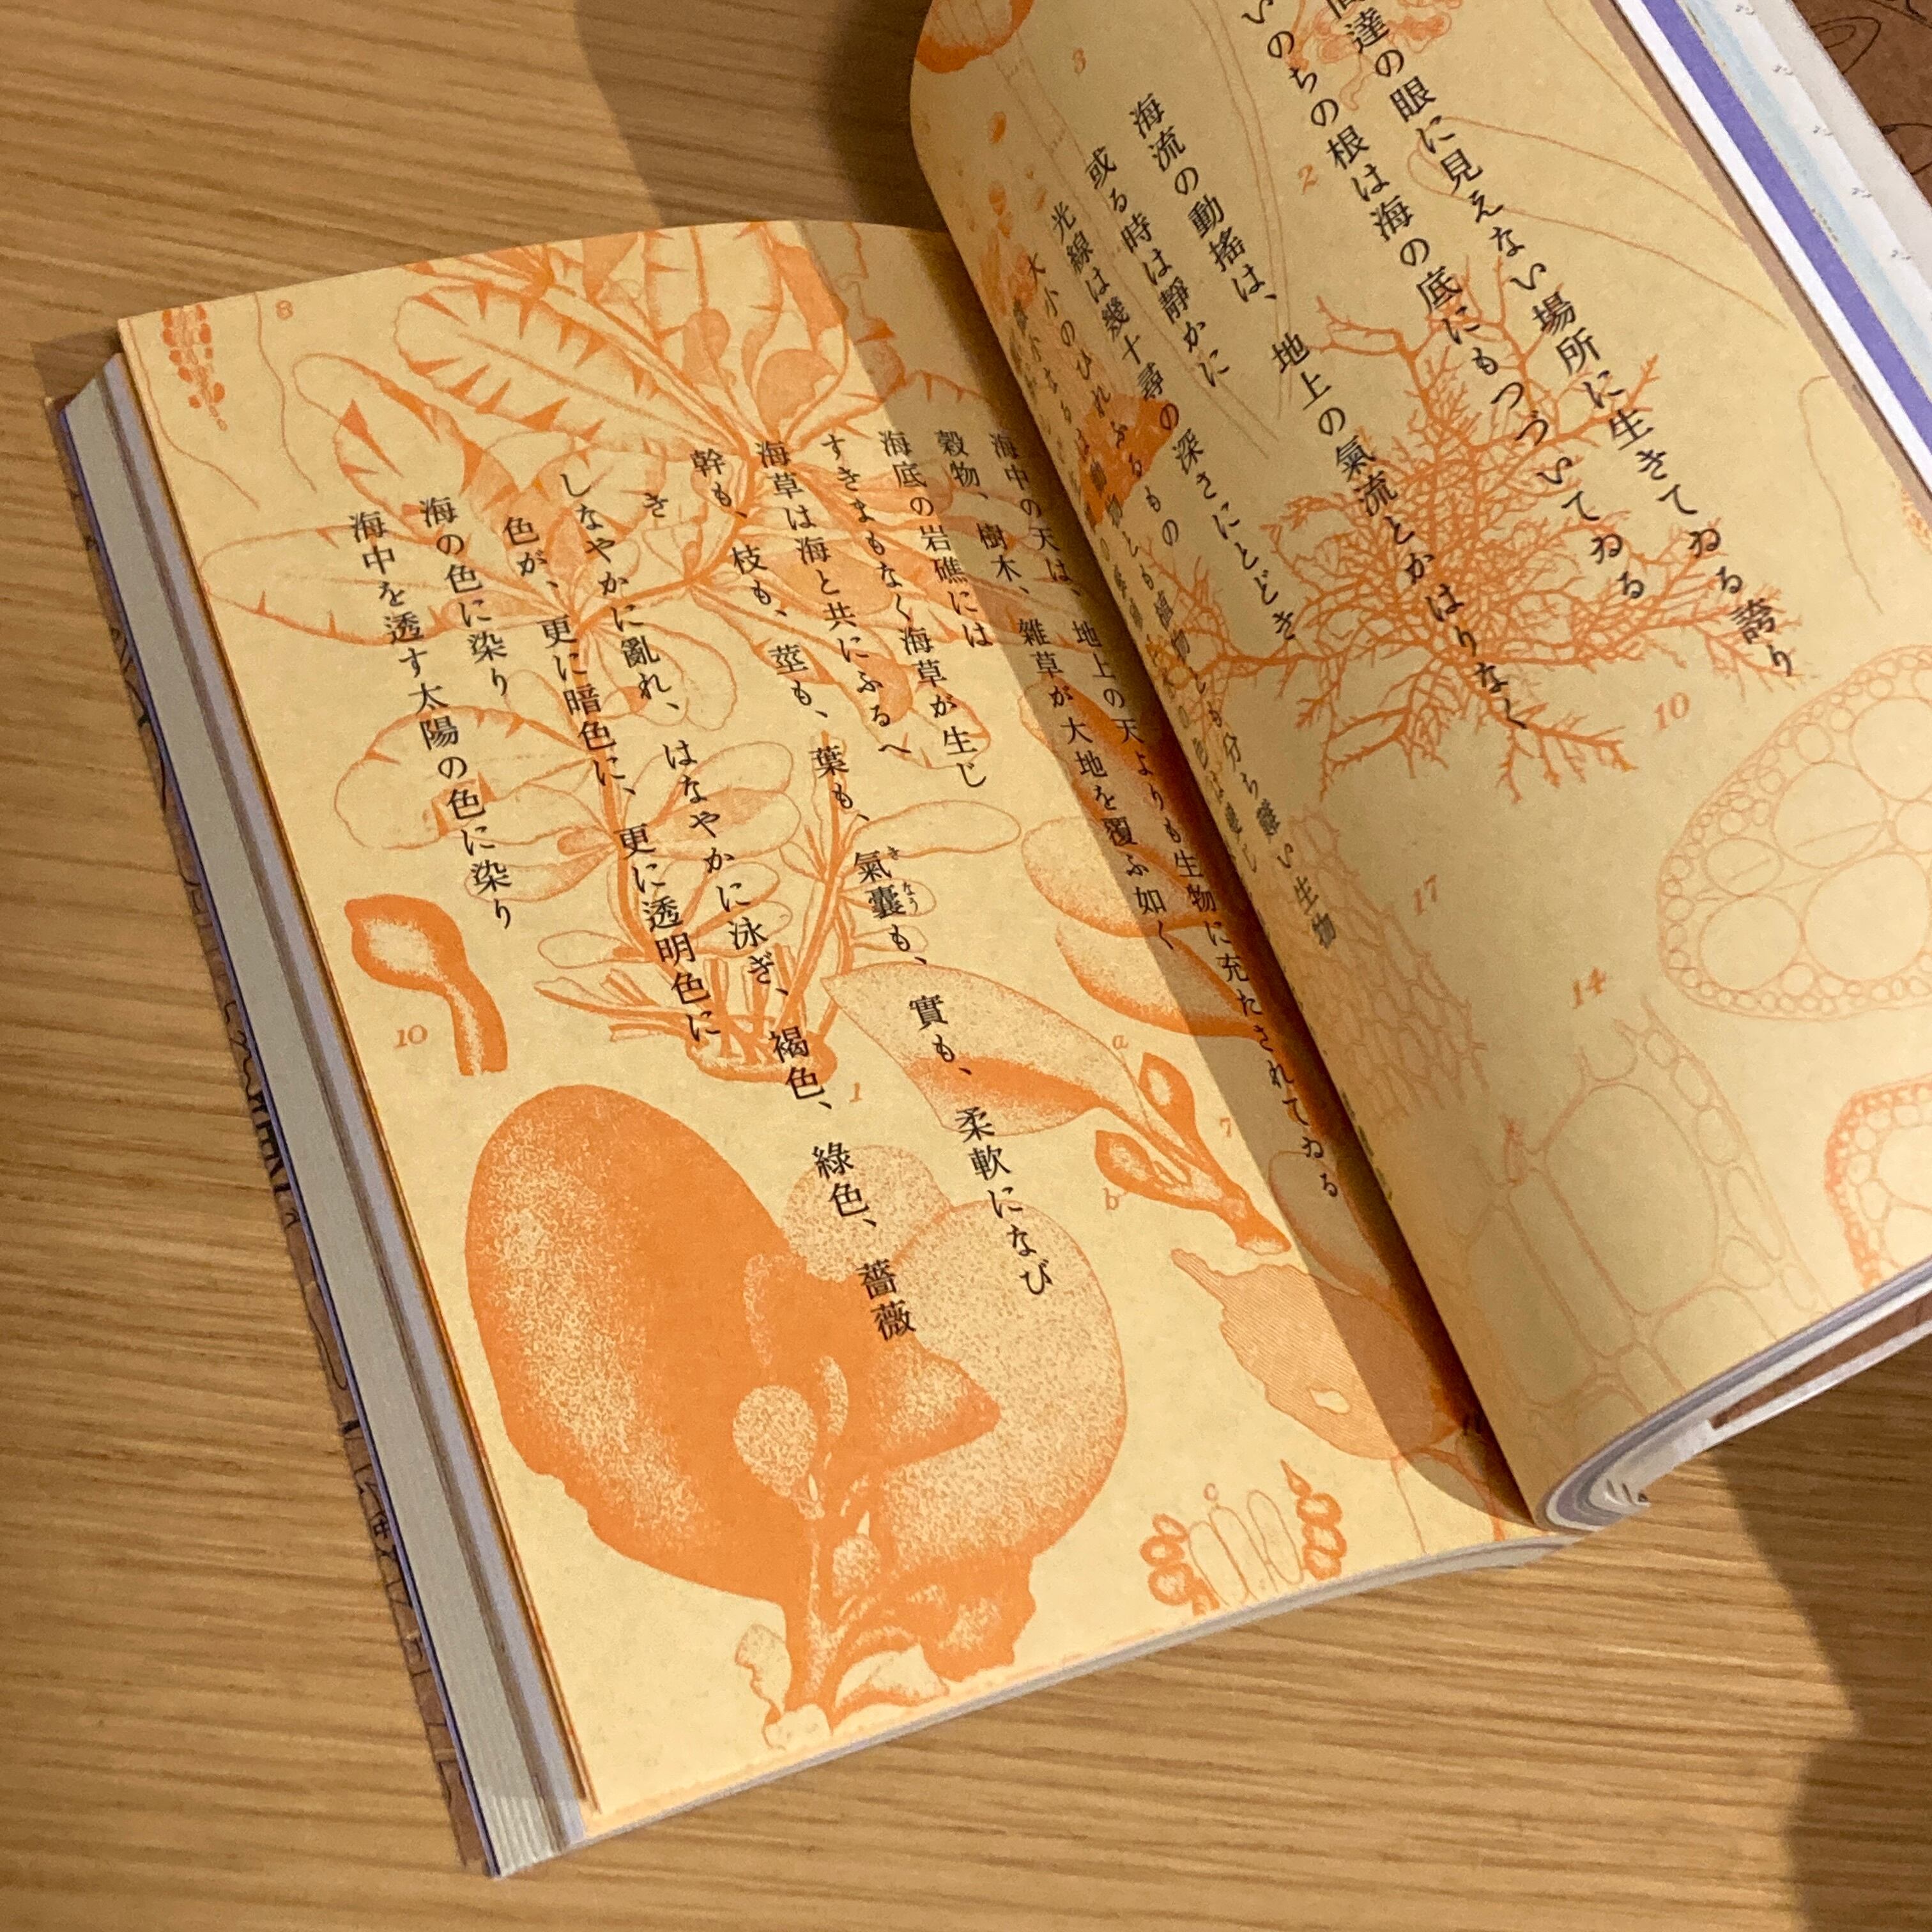 間達の眼に見えない場所に生きてゐる誇り
いのちの根は海の底にもつづいてゐる
海流の動搖は、地上の氣流とかはりなく
或る時は靜かに
光線は幾十尋の深さにとどき
大小のひれふるもの
動物とも植物とも分ち難い生物
海中の天は、地上の天よりも生物に充たされてゐる
穀物、樹木、雜草が大地を覆ふ如く
海底の岩礁には
すきまもなく海草が生じ
海草は海と共にふるへ
幹も、枝も、莖も、葉も、氣囊も、實も、柔軟になび
き
しなやかに亂れ、はなやかに泳ぎ、褐色、綠色、薔薇
色が、更に暗色に、更に透明色に
海の色に染り
海中を透す太陽の色に染り
き
なう
8
10
1
a
b
7
c
3
2
10
17
14